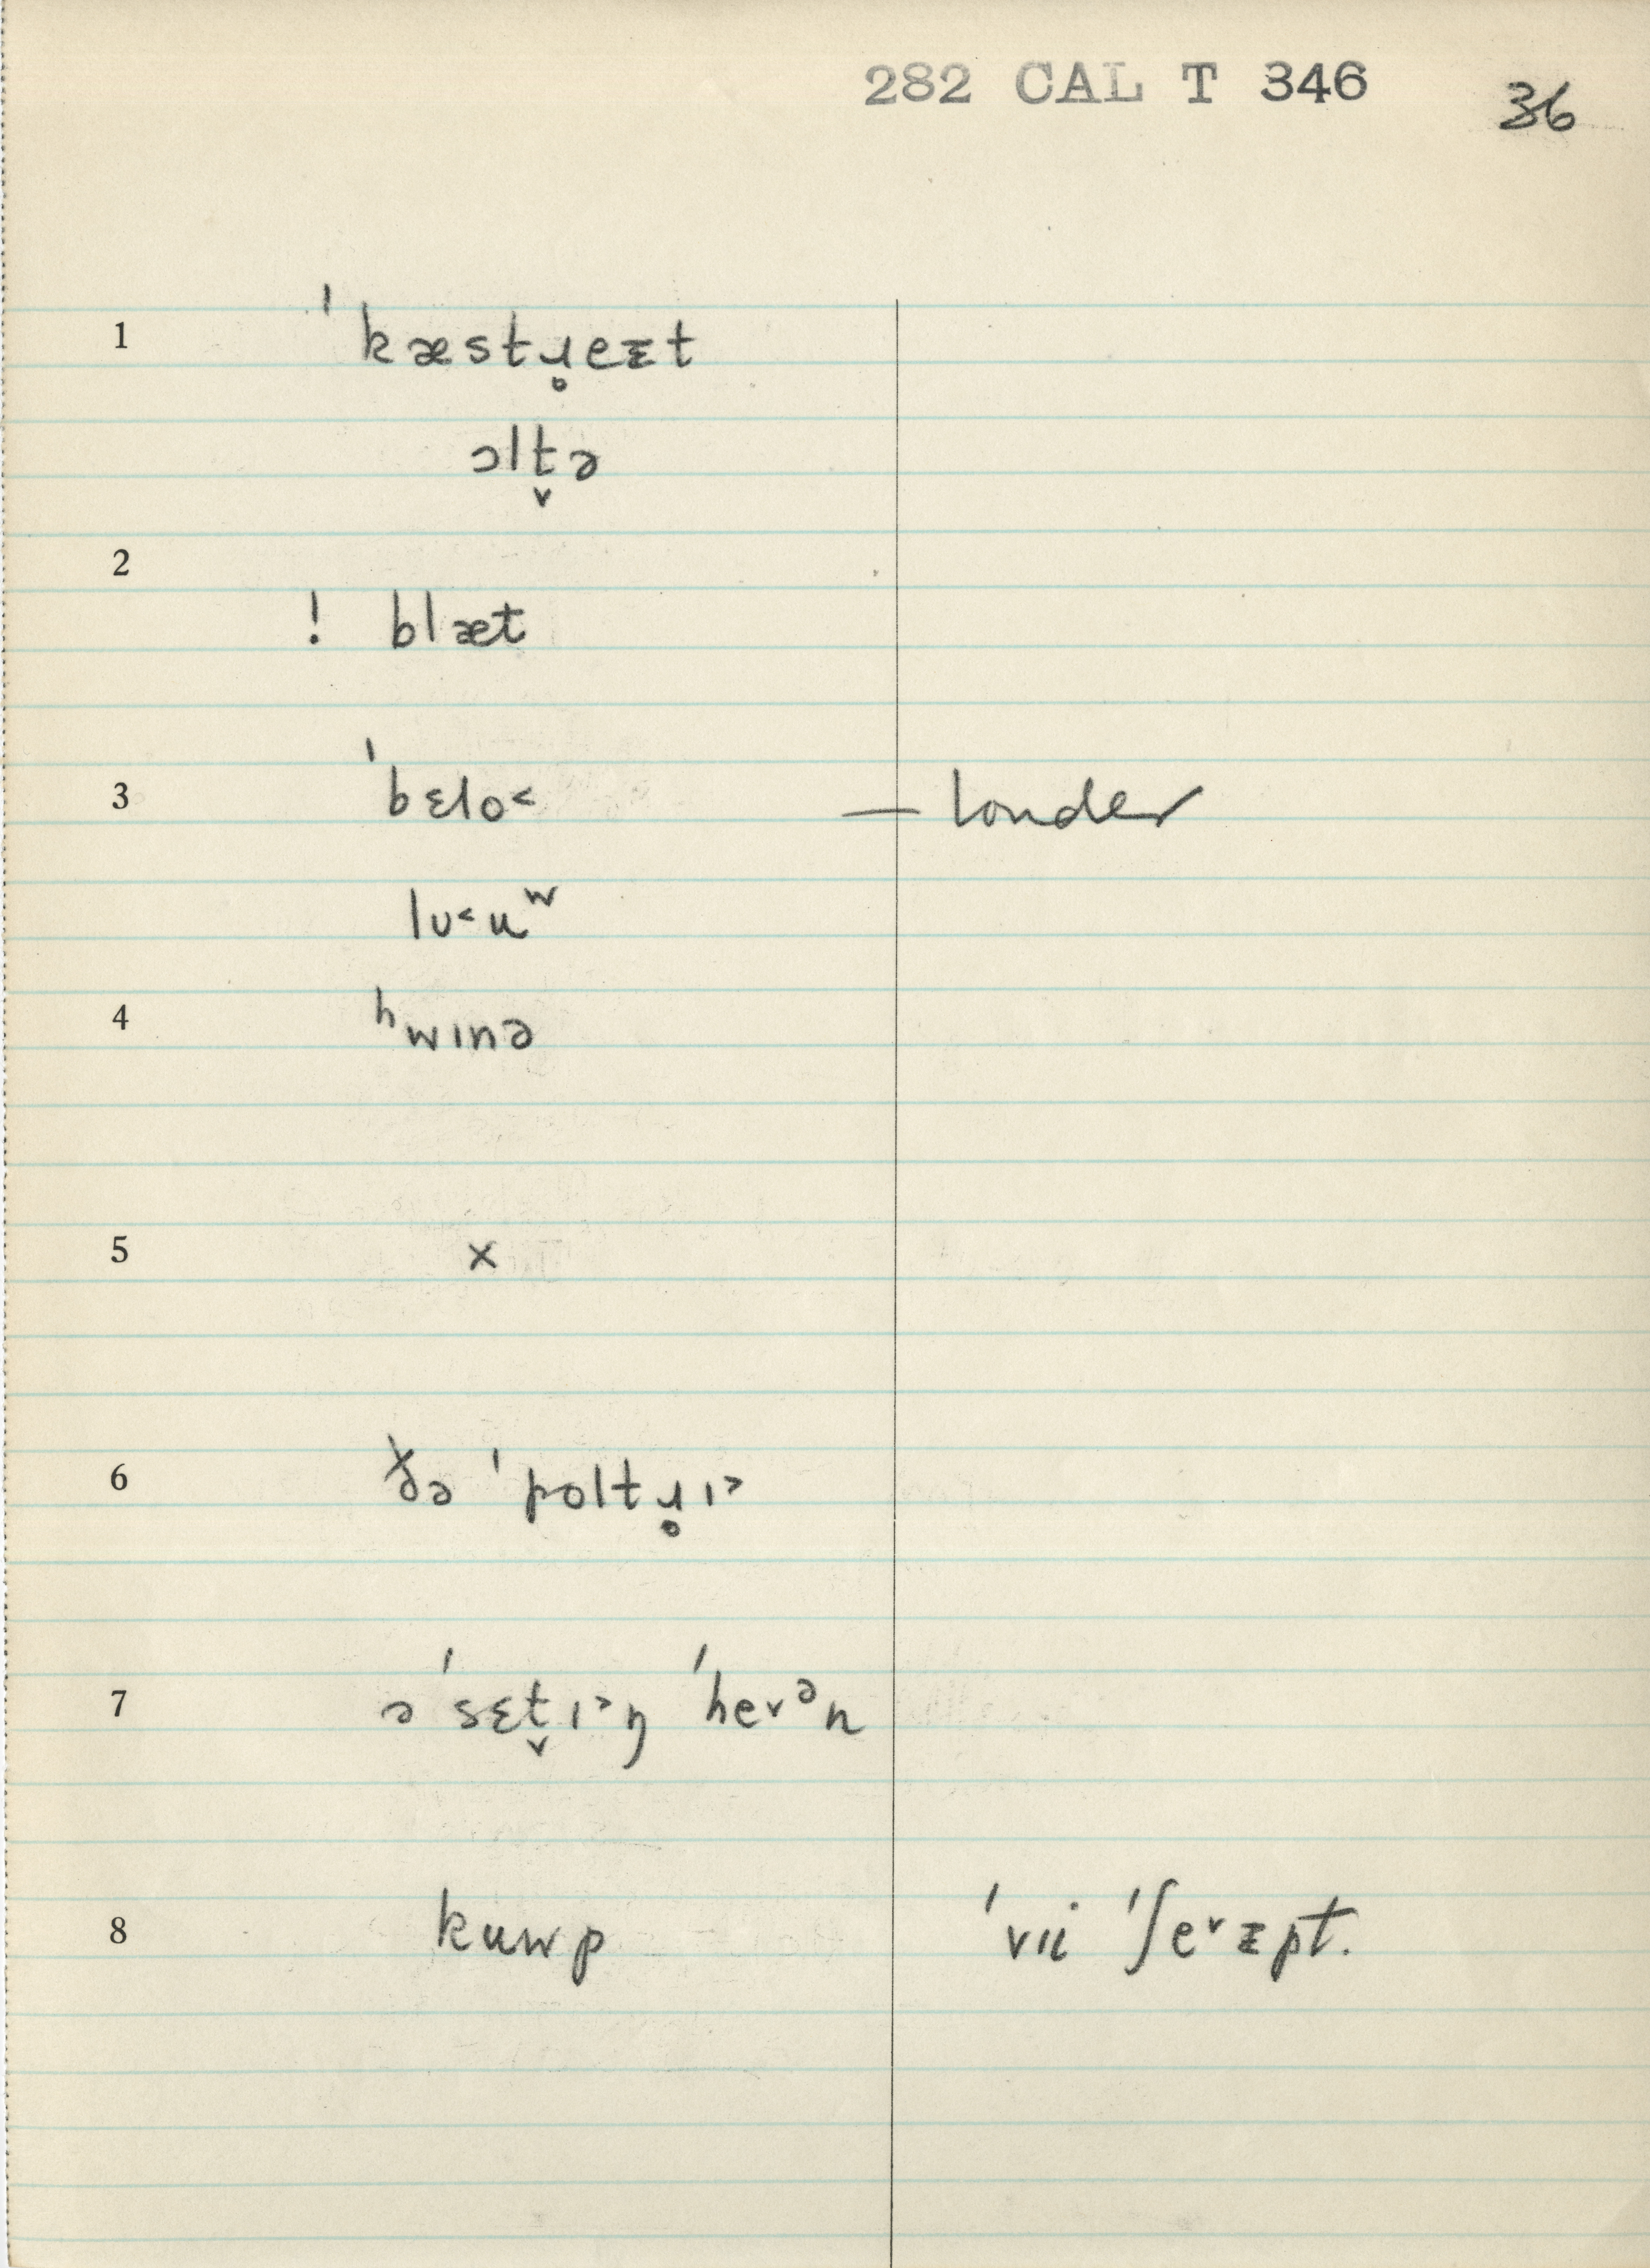 282 CAL T 346 36
1 ˈkæstɹ̥eᵻt
ɔlt̬ə
2
! blæt
3 ˈbɛlo˂ — louder
lʊ˂uʷ
4 ʰwɪnə
5 x
6 ðə ˈpoltɹ̥ɪ˃
7 əˈsɛt̬ɪ˃ŋ ˈhe˅ᵊn
8 kuwp ˈvɪi ˈʃe˅ᵻpt.